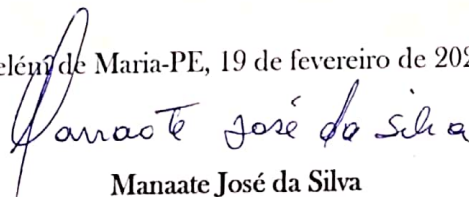 elém de Maria-PE, 19 de fevereiro de 202
Manaate José da Silva
Manaate José da Silva